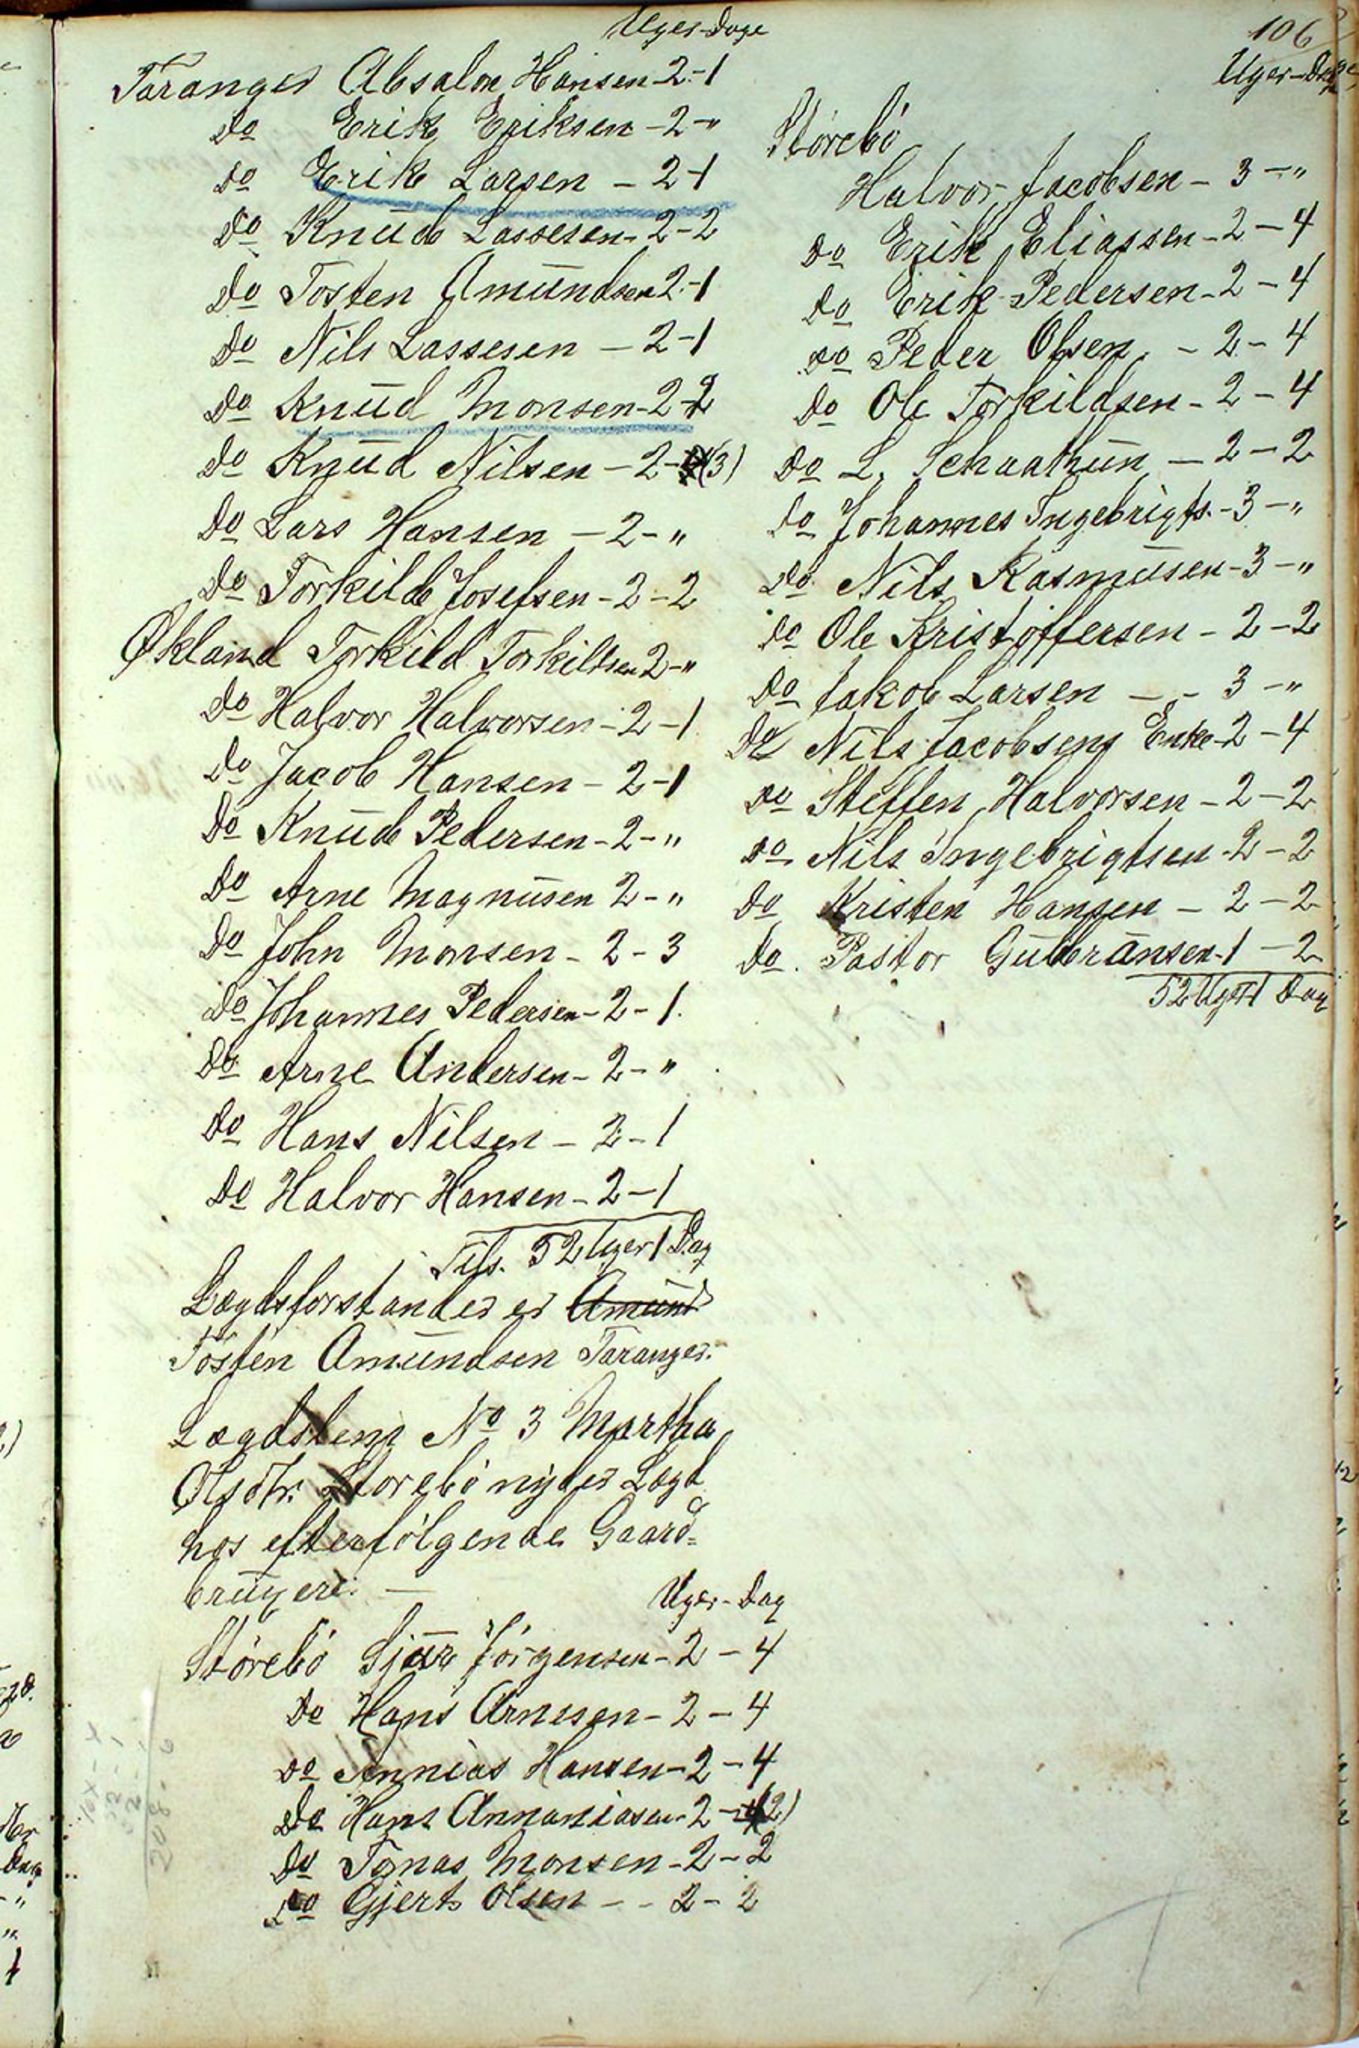 Uger-Dage
Taranger Absalon Hansen-2-1
Do Erik Eriksen-2-"
Do Erik Larsen - 2-1
Do Knud Lassesen-2-2
Do Tosten Amundsen 2-1
Do Nils Lassesen - 2-1
Do Knud Monsen-2-2
Do Knud Nilsen - 2-(3)
Do Lars Hansen - 2-"
Do Torkild Josefsen-2-2
Økland Torkild Torkildsen 2-"
Do Halvor Halvorsen-2-1
Do Jacob Hansen-2-1
Do Knud Pedersen-2-"
Do Arne Magnusen 2-"
Do John Monsen-2-3
Do Johannes Pedersen-2-1.
Do Arne Andersen-2-"
Do Hans Nilsen-2-1
Do Halvor Hansen-2-1
Tils. 52 Uger 1 Dag
Lægdsforstander er Amund
Tosten Amundsen Taranger.
Lægdslem No 3 Martha
Olsdtr. Storebö nyder Lægd
hos efterfölgende Gaard=
brugere. —
Uger-Dag
Störebö Sjur Jörgensen-2-4
Do Hans Arnesen-2-4
Do Annias Hansen-2-4
Do Hans Annaniasen-2-4(2)
Do Tomas Monsen-2-2
Do Gjert Olsen - - 2-2
106
Uger-Dage
Störebö
Halvor Jacobsen - 3 -"
Do Erik Eliassen-2-4
Do Erik Pedersen-2-4
Do Peder Olsen - 2-4
Do Ole Torkildsen-2-4
Do L. Schaathun - 2-2
Do Johannes Ingebrigts.-3-"
Do Nils Rasmusen-3-"
Do Ole Kristoffersen-2-2
Do Jakob Larsen - - 3-"
Do Nils Jacobsens Enke-2-4
Do Steffen Halvorsen-2-2
Do Nils Ingebrigtsen-2-2
Do Kristen Hansen-2-2
Do. Pastor Gulbransen-1-2
52 Uger 1 Dag